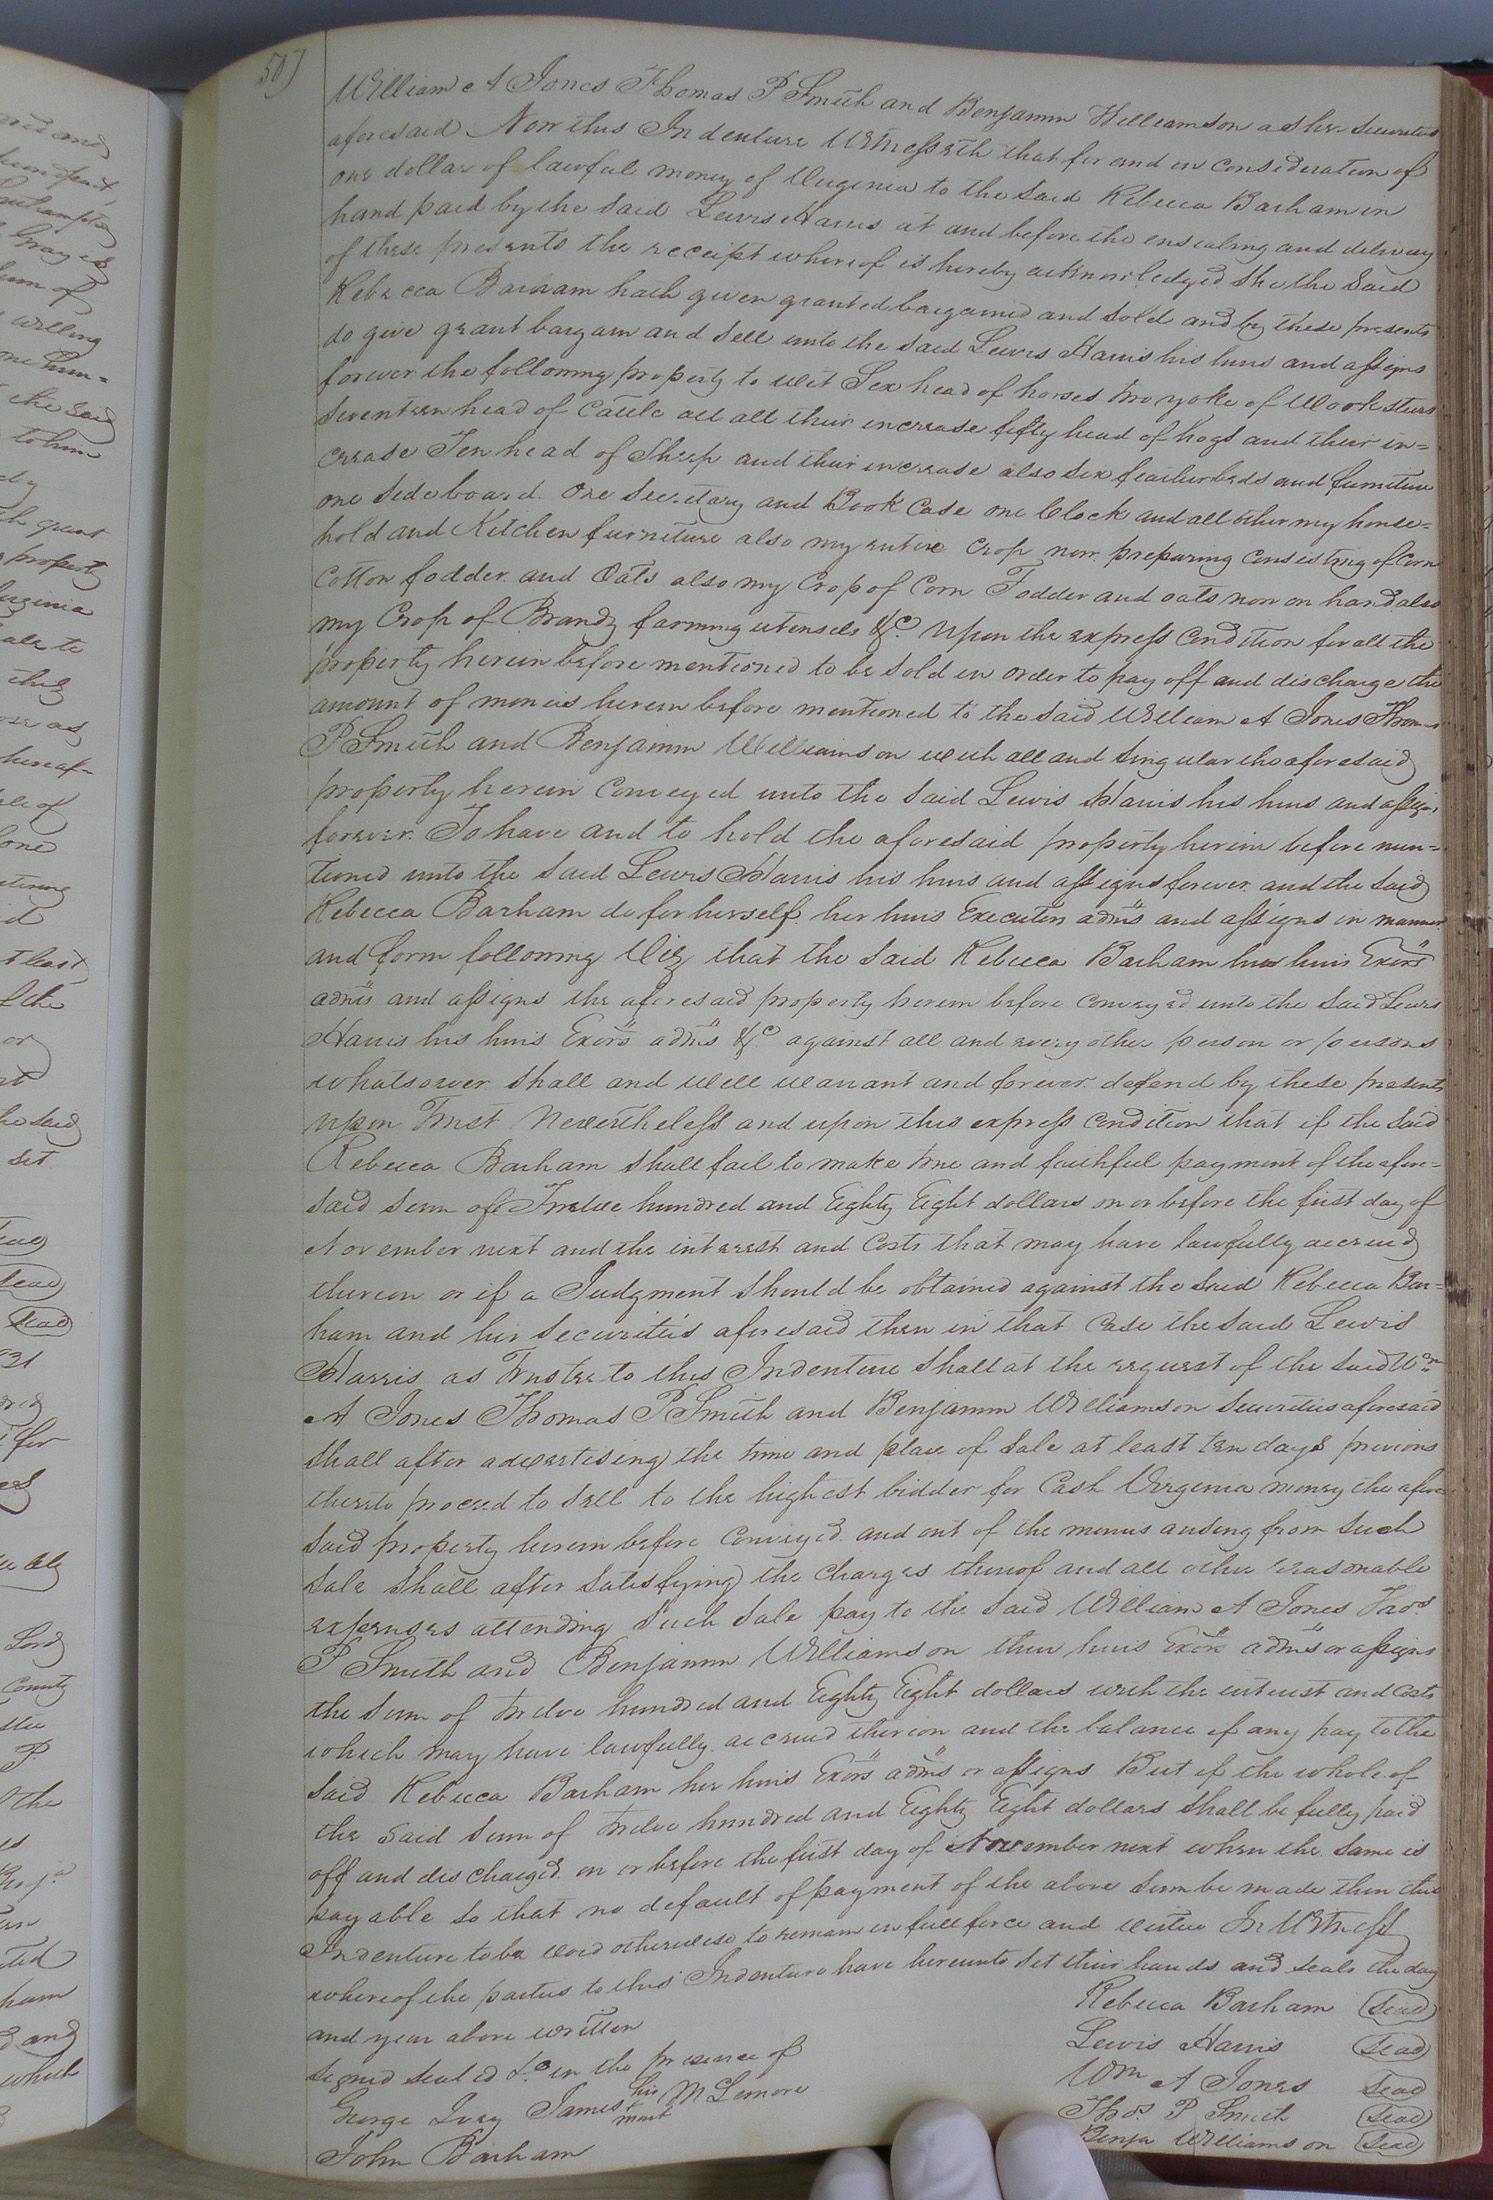 507
William A Jones Thomas P Smith and Benjamin Williamson as her Securities
aforesaid Now this Indenture Witnesseth that for and in consideration of
one dollar of lawful money of Virginia to the said Rebecca Barham in
hand paid by the said Lewis Harris at and before the ensealing and delivery
of these presents the receipt whereof is hereby acknowledged she the said
Rebecca Barham hath given granted bargained and sold and by these presents
do give grant bargain and sell unto the said Lewis Harris his heirs and assigns
forever the following property to wit Six head of horses two yoke of Work steers
Seventeen head of Cattle all all their increase fifty head of hogs and their in=
crease Ten head of Sheep and their increase also six feather beds and furniture
one Side board one Secretary and Book Case one Clock and all other my house=
hold and Kitchen furniture also my entire crop now preparing consisting of Corn
Cotton fodder and Oats also my Crop of Corn Fodder and oats now on hand also
my Crop of Brandy farming utensils &c Upon the express Condition for all the
property herein before mentioned to be sold in order to pay off and discharge the
amount of monies herein before mentioned to the said William A Jones Thomas
P Smith and Benjamin Williamson with all and singular the aforesaid
property herein Conveyed unto the said Lewis Harris his heirs and assigns
forever. To have and to hold the aforesaid property herein before men=
tioned unto the said Lewis Harris his heirs and assigns forever and the said
Rebecca Barham do for herself her heirs Executors adms and assigns in manner
and form following Viz that the said Rebecca Barham her heirs Exors
adms and assigns the aforesaid property herein before conveyed unto the said Lewis
Harris his heirs Exors adms &c against all and every other person or persons
whatsoever shall and will warrant and forever defend by these presents
Upon Trust Nevertheless and upon this express condition that if the said
Rebecca Barham shall fail to make true and faithful payment of the afore=
said sum of Twelve hundred and Eighty Eight dollars on or before the first day of
November next and the interest and Costs that may have lawfully accrued
thereon or if a Judgment should be obtained against the said Rebecca Bar=
ham and her securities aforesaid then in that case the said Lewis
Harris as Trustee to this Indenture shall at the request of the said Wm
A Jones Thomas P Smith and Benjamin Williamson Securities aforesaid
shall after advertising the time and place of sale at least ten days previous
thereto proceed to sell to the highest bidder for Cash Virginia money the afore
said property herein before Conveyed and out of the monies arising from such
sale shall after satisfying the charges thereof and all other reasonable
expenses attending such sale pay to the said William A Jones Thos
P Smith and Benjamin Williamson their heirs Exors adms or assigns
the sum of twelve hundred and Eighty Eight dollars with the interest and Costs
which may have lawfully accrued thereon and the balance if any pay to the
said Rebecca Barham her heirs Exors adms or assigns But if the whole of
the said sum of twelve hundred and Eighty Eight dollars shall be fully paid
off and discharged on or before the first day of November next when the same is
payable so that no default of payment of the above sum be made then this
Indenture to be void otherwise to remain in full force and virtue In Witness
whereof the parties to this Indenture have hereunto set their hands and seals the day
and year above written
Rebecca Barham Seal
Signed sealed &c in the presence of
Lewis Harris Seal
George Ivey James his + mark McLemore
Wm A Jones Seal
John Barham
Thos P Smith Seal
Benja Williamson Seal